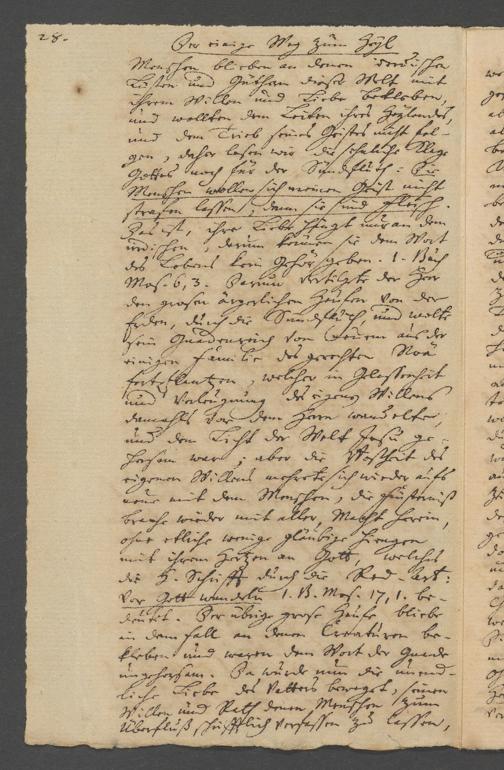 28.
Der einige Weg zum Heyl
Menschen blieben an denen irrdischen
Lüsten und Güthern dieser Welt mit
ihrem Willen und Liebe bekleben,
und wollten dem Leiten ihres Heylandes,
und dem Trieb seines Geistes nicht fol-
gen, daher lesen wir die schmertzliche Klage
Gottes noch für der Sündfluth: Die
Menschen wollen sich meinen Geist nicht
straffen lassen; denn sie sind Fleisch.
Das ist, ihre Liebe hängt nur an dem
irrdischen, darum können sie dem Wort
des Lebens kein Gehör geben. 1. Buch
Mos. 6, 3. Darum vertilgte der Herr
den grosen ärgerlichen Haufen von der
Erden, durch die Sündfluth und wolte
sein Gnadenreich von Neuem aus der
einigen Familie des gerechten Noä
fortpflantzen, welcher in Gelassenheit
und Verleugnung des eigenen Willens
damahls vor dem Herrn wandelte,
und dem Licht der Welt Jesu ge-
horsam war; aber die Bosheit des
eigenen Willens mehrete sich wieder aufs
neue mit dem Menschen, die Finsterniß
brache wieder mit aller Macht herein,
ohne etliche wenige gläubige hiengen
mit ihrem Hertzen an Gott, welches
die H. Schrifft durch die Red-Art:
Vor Gott wandeln 1. B. Mos. 17, 1. be-
deutet. Der übrige grose Haufe bliebe
in dem Fall an denen Creaturen be-
kleben und waren dem Wort der Gnade
ungehorsam. Da wurde nun die unend-
liche Liebe des Vatters bewegt, seinen
Willen und Rath denen Menschen zum
Überfluß schrifftlich verfassen zu lassen,